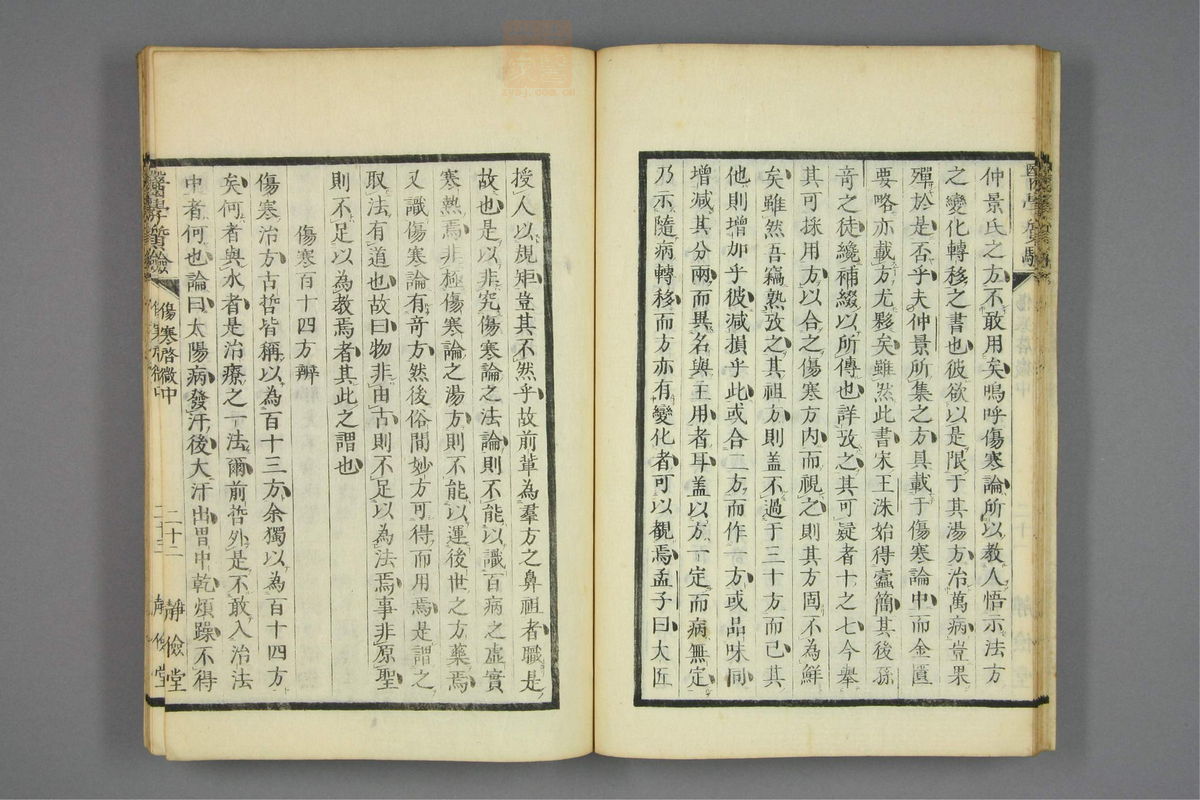 仲景氏之方不敢用矣嗚呼傷寒論所以教人悟示法方
之變化轉移之書也彼欲以是限于其湯方治萬病豈果
殫於是否乎夫仲景所集之方具載于傷寒論中而金匱
要略亦載方尤夥矣雖然此書宋王洙始得蠹簡其後孫
奇之徒纔補綴以所傳也詳攷之其可疑者十之七今舉
其可採用方以合之傷寒方内而視之則其方固不為鮮
矣雖然吾竊熟攷之其祖方則盖不過于三十方而已其
他則增加乎彼減損乎此或合二方而作一方或品味同
增減其分兩而異名與主用者耳盖以方一定而病無定
乃示隨病轉移而方亦有變化者可以觀焉孟子曰大匠
授人以規矩豈其不然乎故前輩為羣方之鼻祖者職是
故也是以非究傷寒論之法論則不能以識百病之虛實
寒熱焉非極傷寒論之湯方則不能以運後世之方藥焉
又識傷寒論有奇方然後俗間妙方可得而用焉是謂之
取法有道也故曰物非由古則不足以為法焉事非原聖
則不足以為教焉者其此之謂也
傷寒百十四方辨
傷寒治方古哲皆稱以為百十三方余獨以為百十四方
矣何者與水者是治療之一法爾前哲外是不敢入治法
中者何也論曰太陽病發汗後大汗出胃中乾煩躁不得
醫學質驗
傷寒啓微中
二十二
靜儉堂